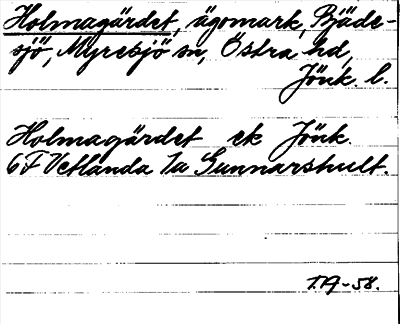 Holmagärdet, ägomark, Bjäde-
sjö, Myresjö sn, Östra hd,
Jönk. l.
Holmagärdet ek Jönk.
6F Vetlanda 1a Gunnarshult.
T.A-58.